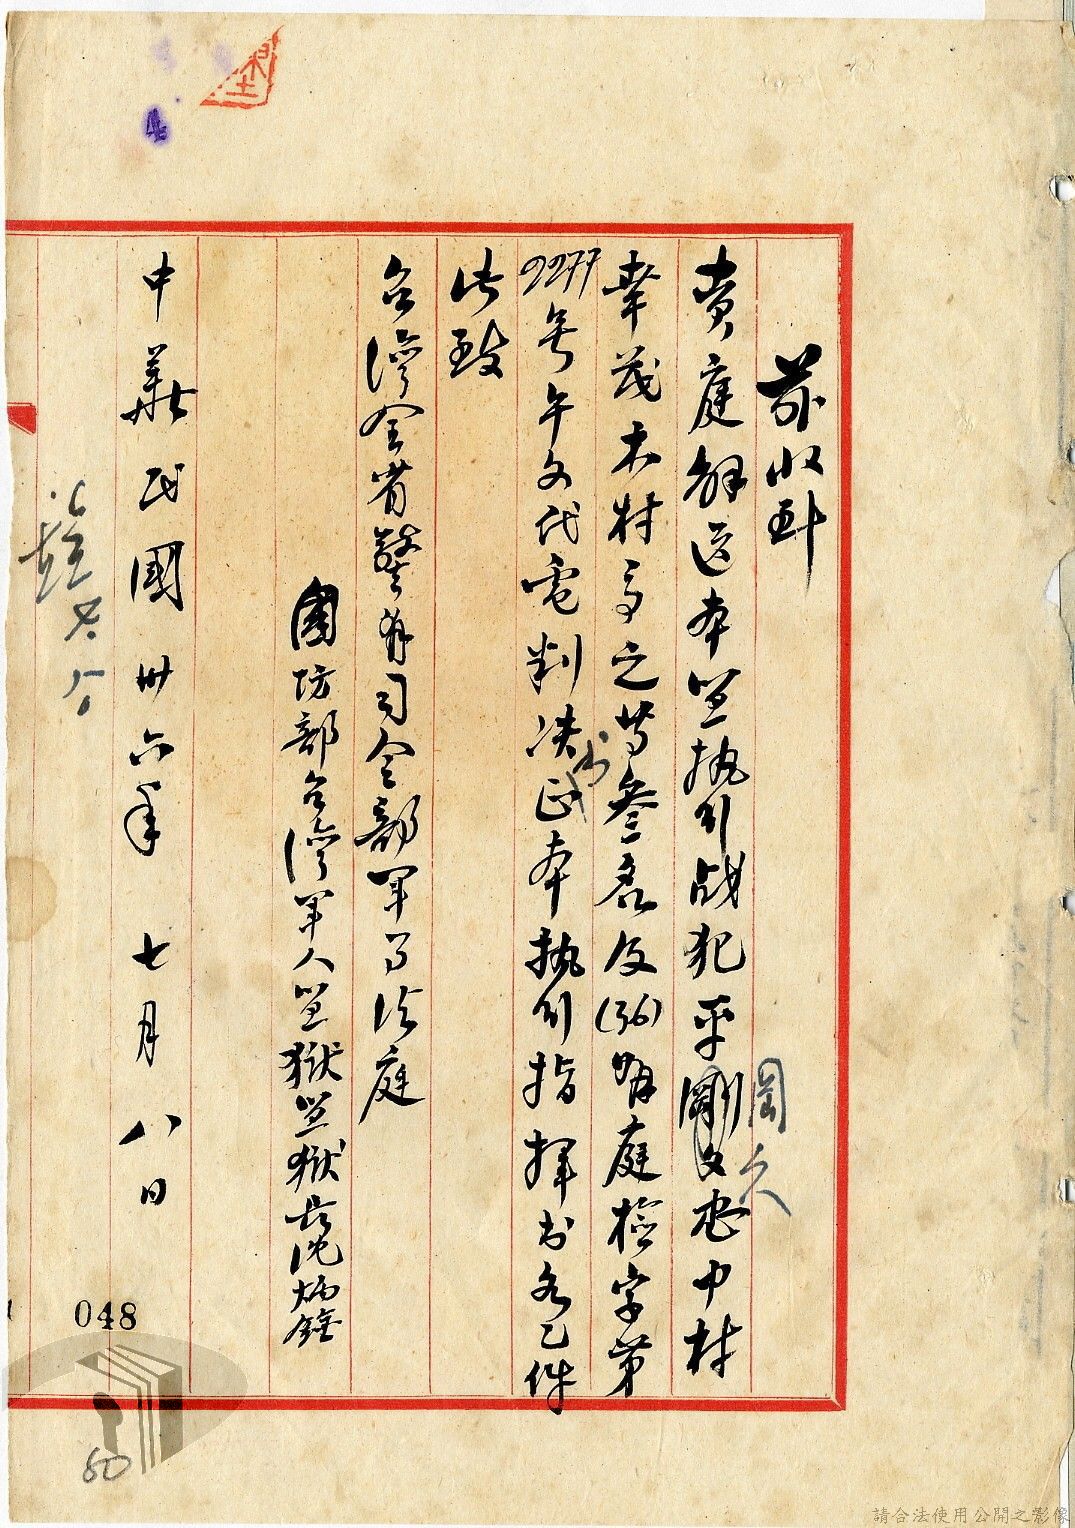 茲收到
貴庭解送本監執行战犯平剛又忠中村
岡久
幸茂木村高之等叁名及(36)明庭檢字第
2277号午文代電判决正本執行指揮书各乙件
书
此致
台灣全省警备司令部軍事法庭
國防部台灣軍人監獄監獄長沈炳銓
中華民國卅六年七月八日
048
80
請合法使用公開之影像